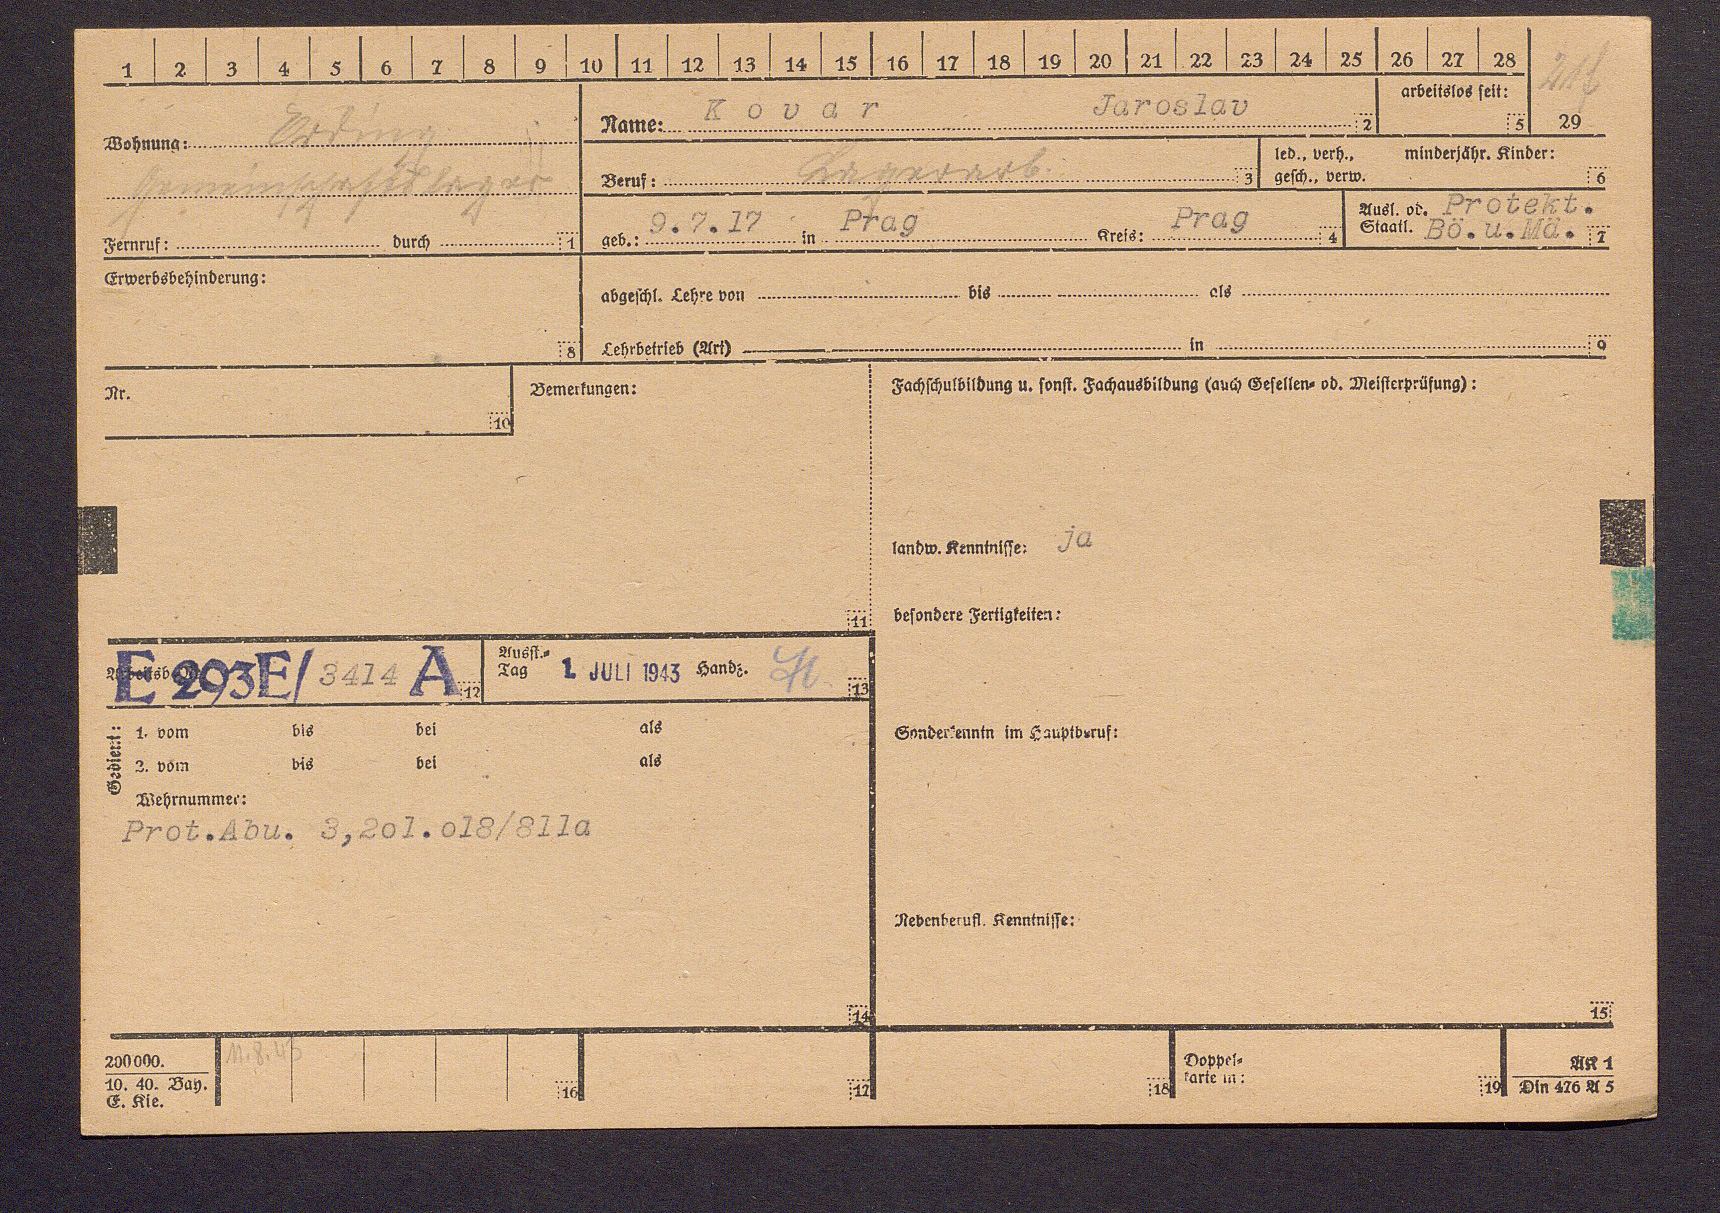 1 2 3 4 5 6 7 8 9 10 11 12 13 14 15 16 17 18 19 20 21 22 23 24 25 26 27 28
29
Wohnung: Erding
Gemeinschaftslager
Fernruf: durch 1
Name: Kovar Jaroslav 2
arbeitslos seit: 5
Beruf: Lagerarb. 3
led., verh., minderjähr. Kinder:
gesch., verw. 6
geb.: 9.7.17 in Prag Kreis: Prag 4
Ausl. od. Protekt.
Staatl. Bö.u.Mä. 7
Erwerbsbehinderung:
8
abgeschl. Lehre von bis als
Lehrbetrieb (Art) in 9
Nr.
10
Bemerkungen:
11
Fachschulbildung u. sonst. Fachausbildung (auch Gesellen- od. Meisterprüfung):
landw. Kenntnisse: ja
besondere Fertigkeiten:
E 293E/ 3414 A 12
Ausst.-
Tag 1. JULI 1943 Handz. 13
Gedient:
1. vom bis bei als
2. vom bis bei als
Wehrnummer:
Prot.Abu. 3,2ol.ol8/811a
14
Sonderkenntn im Hauptberuf:
Nebenberufl. Kenntnisse:
15
200000.
10. 40. Bay.
E. Kie.
11.8.43
16
17
18
Doppel-
karte in:
19
AK 1
Din 476 A 5